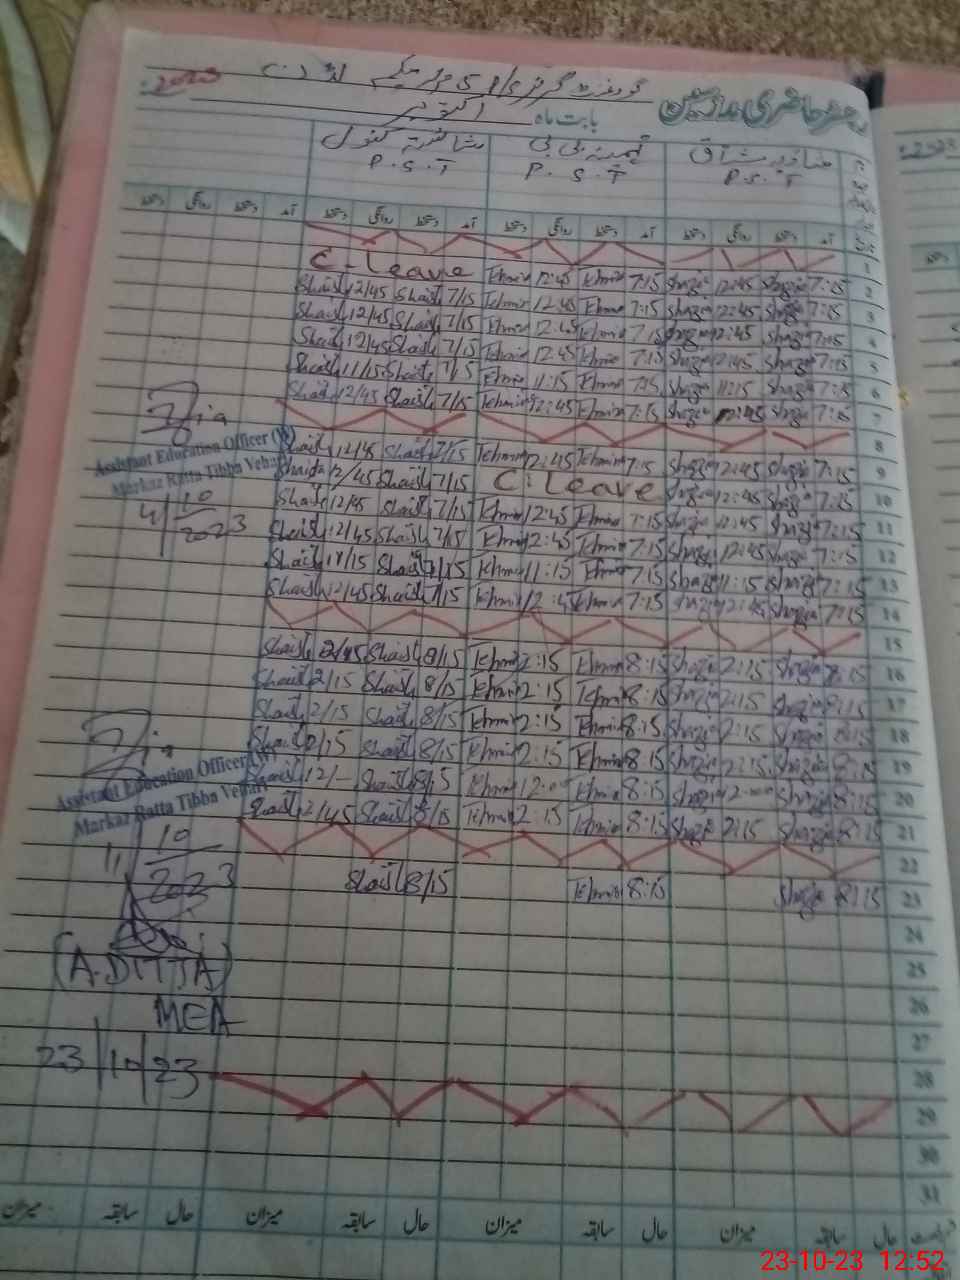 رجسٹر حاضری مدرسین
بابت ماہ اکتوبر 2023
شازیہ مشتاق ثمینہ بی بی شائستہ کنول
P.S.T P.S.T P.S.T
آمد دستخط روانگی دستخط آمد دستخط روانگی دستخط آمد دستخط روانگی دستخط آمد دستخط روانگی دستخط
1
C. leave Tehmin 12:45 Tehmin 7:15 Shazia 12:45 Shazia 7:15 2
Shaista 12/45 Shaista 7/15 Tehmin 12:45 Tehmin 7:15 Shazia 12:45 Shazia 7:15 3
Shaista 12/45 Shaista 7/15 Tehmin 12:45 Tehmin 7:15 Shazia 12:45 Shazia 7:15 4
Shaista 12/45 Shaista 7/15 Tehmin 12:45 Tehmin 7:15 Shazia 12:45 Shazia 7:15 5
Shaista 11/15 Shaista 7/15 Tehmin 11:15 Tehmin 7:15 Shazia 11:15 Shazia 7:15 6
Shaista 12/45 Shaista 7/15 Tehmin 12:45 Tehmin 7:15 Shazia 12:45 Shazia 7:15 7
8
Shaista 12/45 Shaista 7/15 Tehmin 12:45 Tehmin 7:15 Shazia 12:45 Shazia 7:15 9
Shaista 12/45 Shaista 7/15 C. Leave Shazia 12:45 Shazia 7:15 10
Shaista 12/45 Shaista 7/15 Tehmin 12:45 Tehmin 7:15 Shazia 12:45 Shazia 7:15 11
Shaista 12/45 Shaista 7/15 Tehmin 12:45 Tehmin 7:15 Shazia 12:45 Shazia 7:15 12
Shaista 11/15 Shaista 7/15 Tehmin 11:15 Tehmin 7:15 Shazia 11:15 Shazia 7:15 13
Shaista 12/45 Shaista 7/15 Tehmin 12:45 Tehmin 7:15 Shazia 12:45 Shazia 7:15 14
15
Shaista Shaista 8/15 Tehmin 2:15 Tehmin 8:15 Shazia 2:15 Shazia 8:15 16
Shaista 2/15 Shaista 8/15 Tehmin 2:15 Tehmin 8:15 Shazia 2:15 Shazia 8:15 17
Shaista 2/15 Shaista 8/15 Tehmin 2:15 Tehmin 8:15 Shazia 2:15 Shazia 8:15 18
Shaista 2/15 Shaista 8/15 Tehmin 2:15 Tehmin 8:15 Shazia 2:15 Shazia 8:15 19
Shaista 12/- Shaista 8/15 Tehmin 12:00 Tehmin 8:15 Shazia 12:00 Shazia 8:15 20
Shaista 2/45 Shaista 8/15 Tehmin 2:15 Tehmin 8:15 Shazia 2:15 Shazia 8:15 21
22
Shaista 8/15 Tehmin 8:15 Shazia 8:15 23
24
25
26
27
28
29
30
31
Assistant Education Officer (W)
Markaz Ratta Tibba Vehari
4/10/2023
Assistant Education Officer (W)
Markaz Ratta Tibba Vehari
11/10/2023
(A.DITTA)
MEA
23/10/23
حال سابقہ میزان حال سابقہ میزان حال سابقہ میزان حال سابقہ میزان
23-10-23 12:52